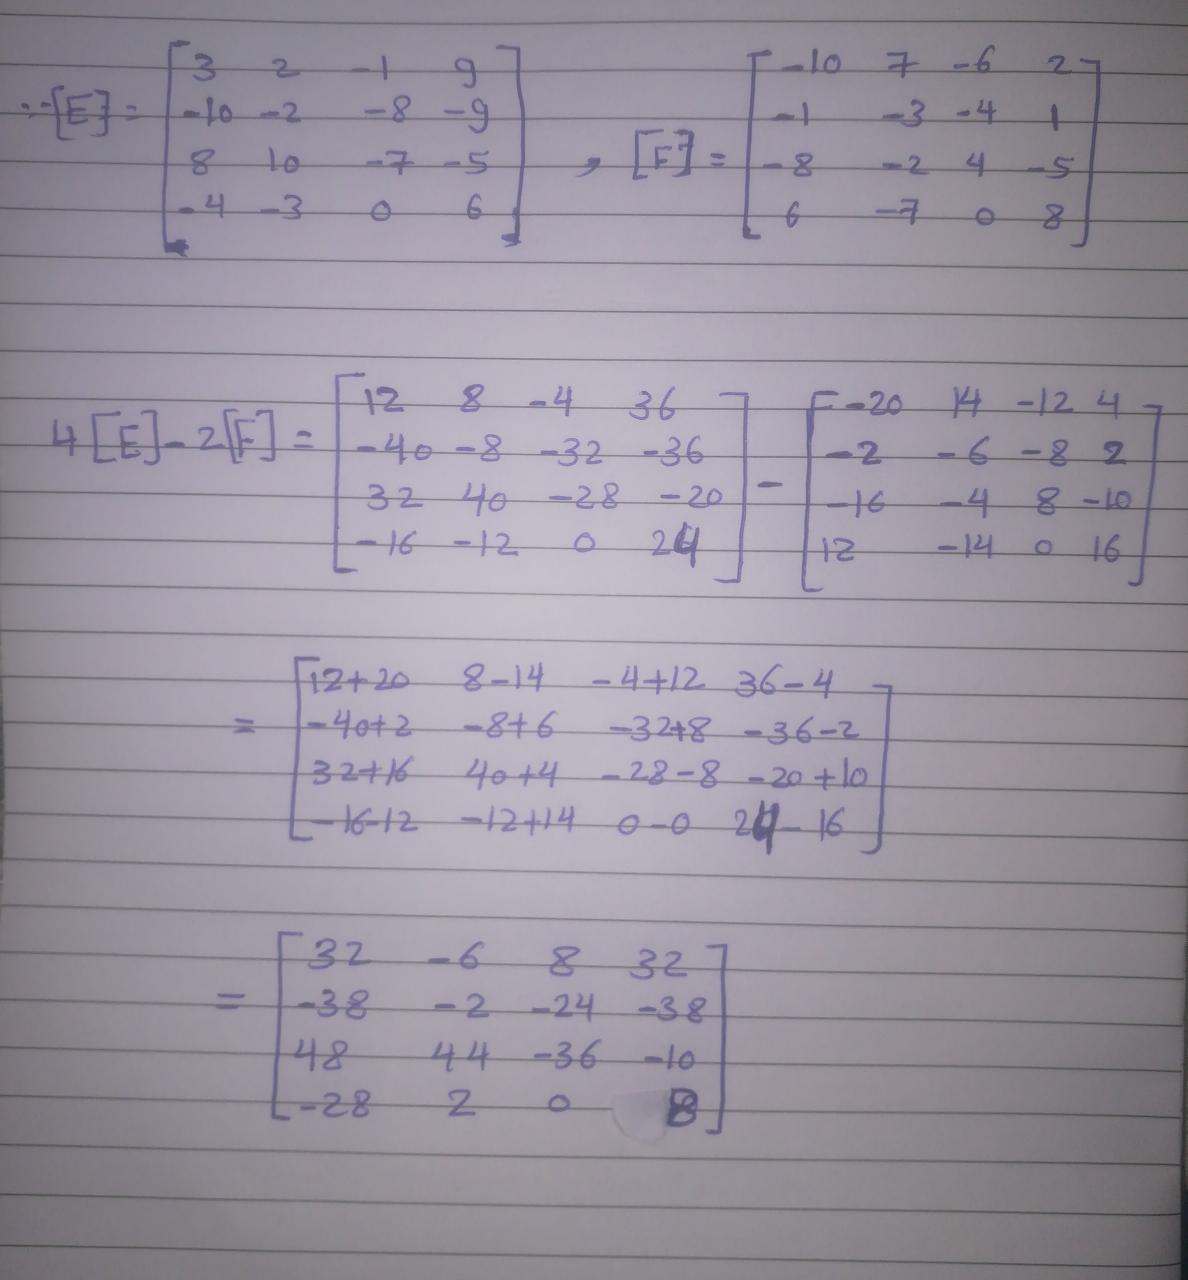 ∵ [E] = [3 2 -1 9
-10 -2 -8 -9
8 10 -7 -5
-4 -3 0 6] , [F] = [-10 7 -6 2
-1 -3 -4 1
-8 -2 4 -5
6 -7 0 8]
4[E] - 2[F] = [12 8 -4 36
-40 -8 -32 -36
32 40 -28 -20
-16 -12 0 24] - [-20 14 -12 4
-2 -6 -8 2
-16 -4 8 -10
12 -14 0 16]
= [12+20 8-14 -4+12 36-4
-40+2 -8+6 -32+8 -36-2
32+16 40+4 -28-8 -20+10
-16-12 -12+14 0-0 24-16]
= [32 -6 8 32
-38 -2 -24 -38
48 44 -36 -10
-28 2 0 8]